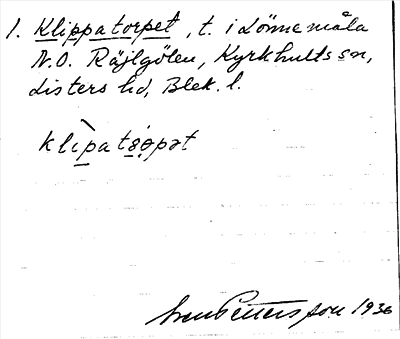 1. Klippatorpet, t. i Lönnemåla
N.O. Räjlgölen, Kyrkhults sn,
Listers hd, Blek. l.
klìpatɷpət
Sven Pettersson 1936